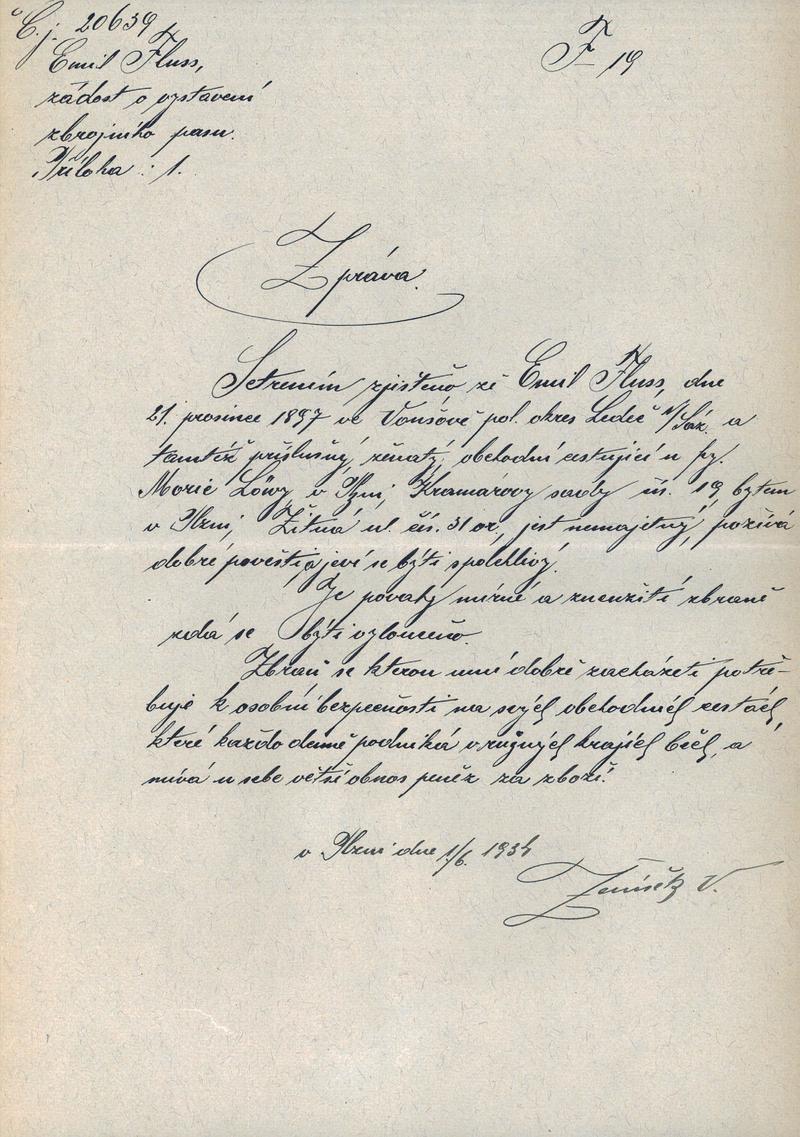 Č.j. 20639
F 19
Emil Fluss,
žádost o vystavení
zbrojního pasu.
Příloha : 1.
Zpráva.
Šetřením zjištěno že Emil Fluss, dne
21. prosince 1897 ve Vonšově pol. okres Ledeč n/Sáz. a
tamtéž příslušný, ženatý, obchodní cestující u fy.
Moric Löwy v Plzni, Kramarovy sady čís. 19, bytem
v Plzni, Žitná ul. čís. 31 or, jest nemajetný, požívá
dobré pověsti a jeví se býti spolehlivý.
Je povahy mírné a zneužití zbraně
zdá se býti vyloučeno.
Zbraň se kterou umí dobře zacházeti potře-
buje k osobní bezpečnosti na svých obchodních cestách,
které každo denně podniká v různých krajích Čech, a
mívá u sebe větší obnos peněz za zboží.
v Plzni dne 1/6. 193
V.